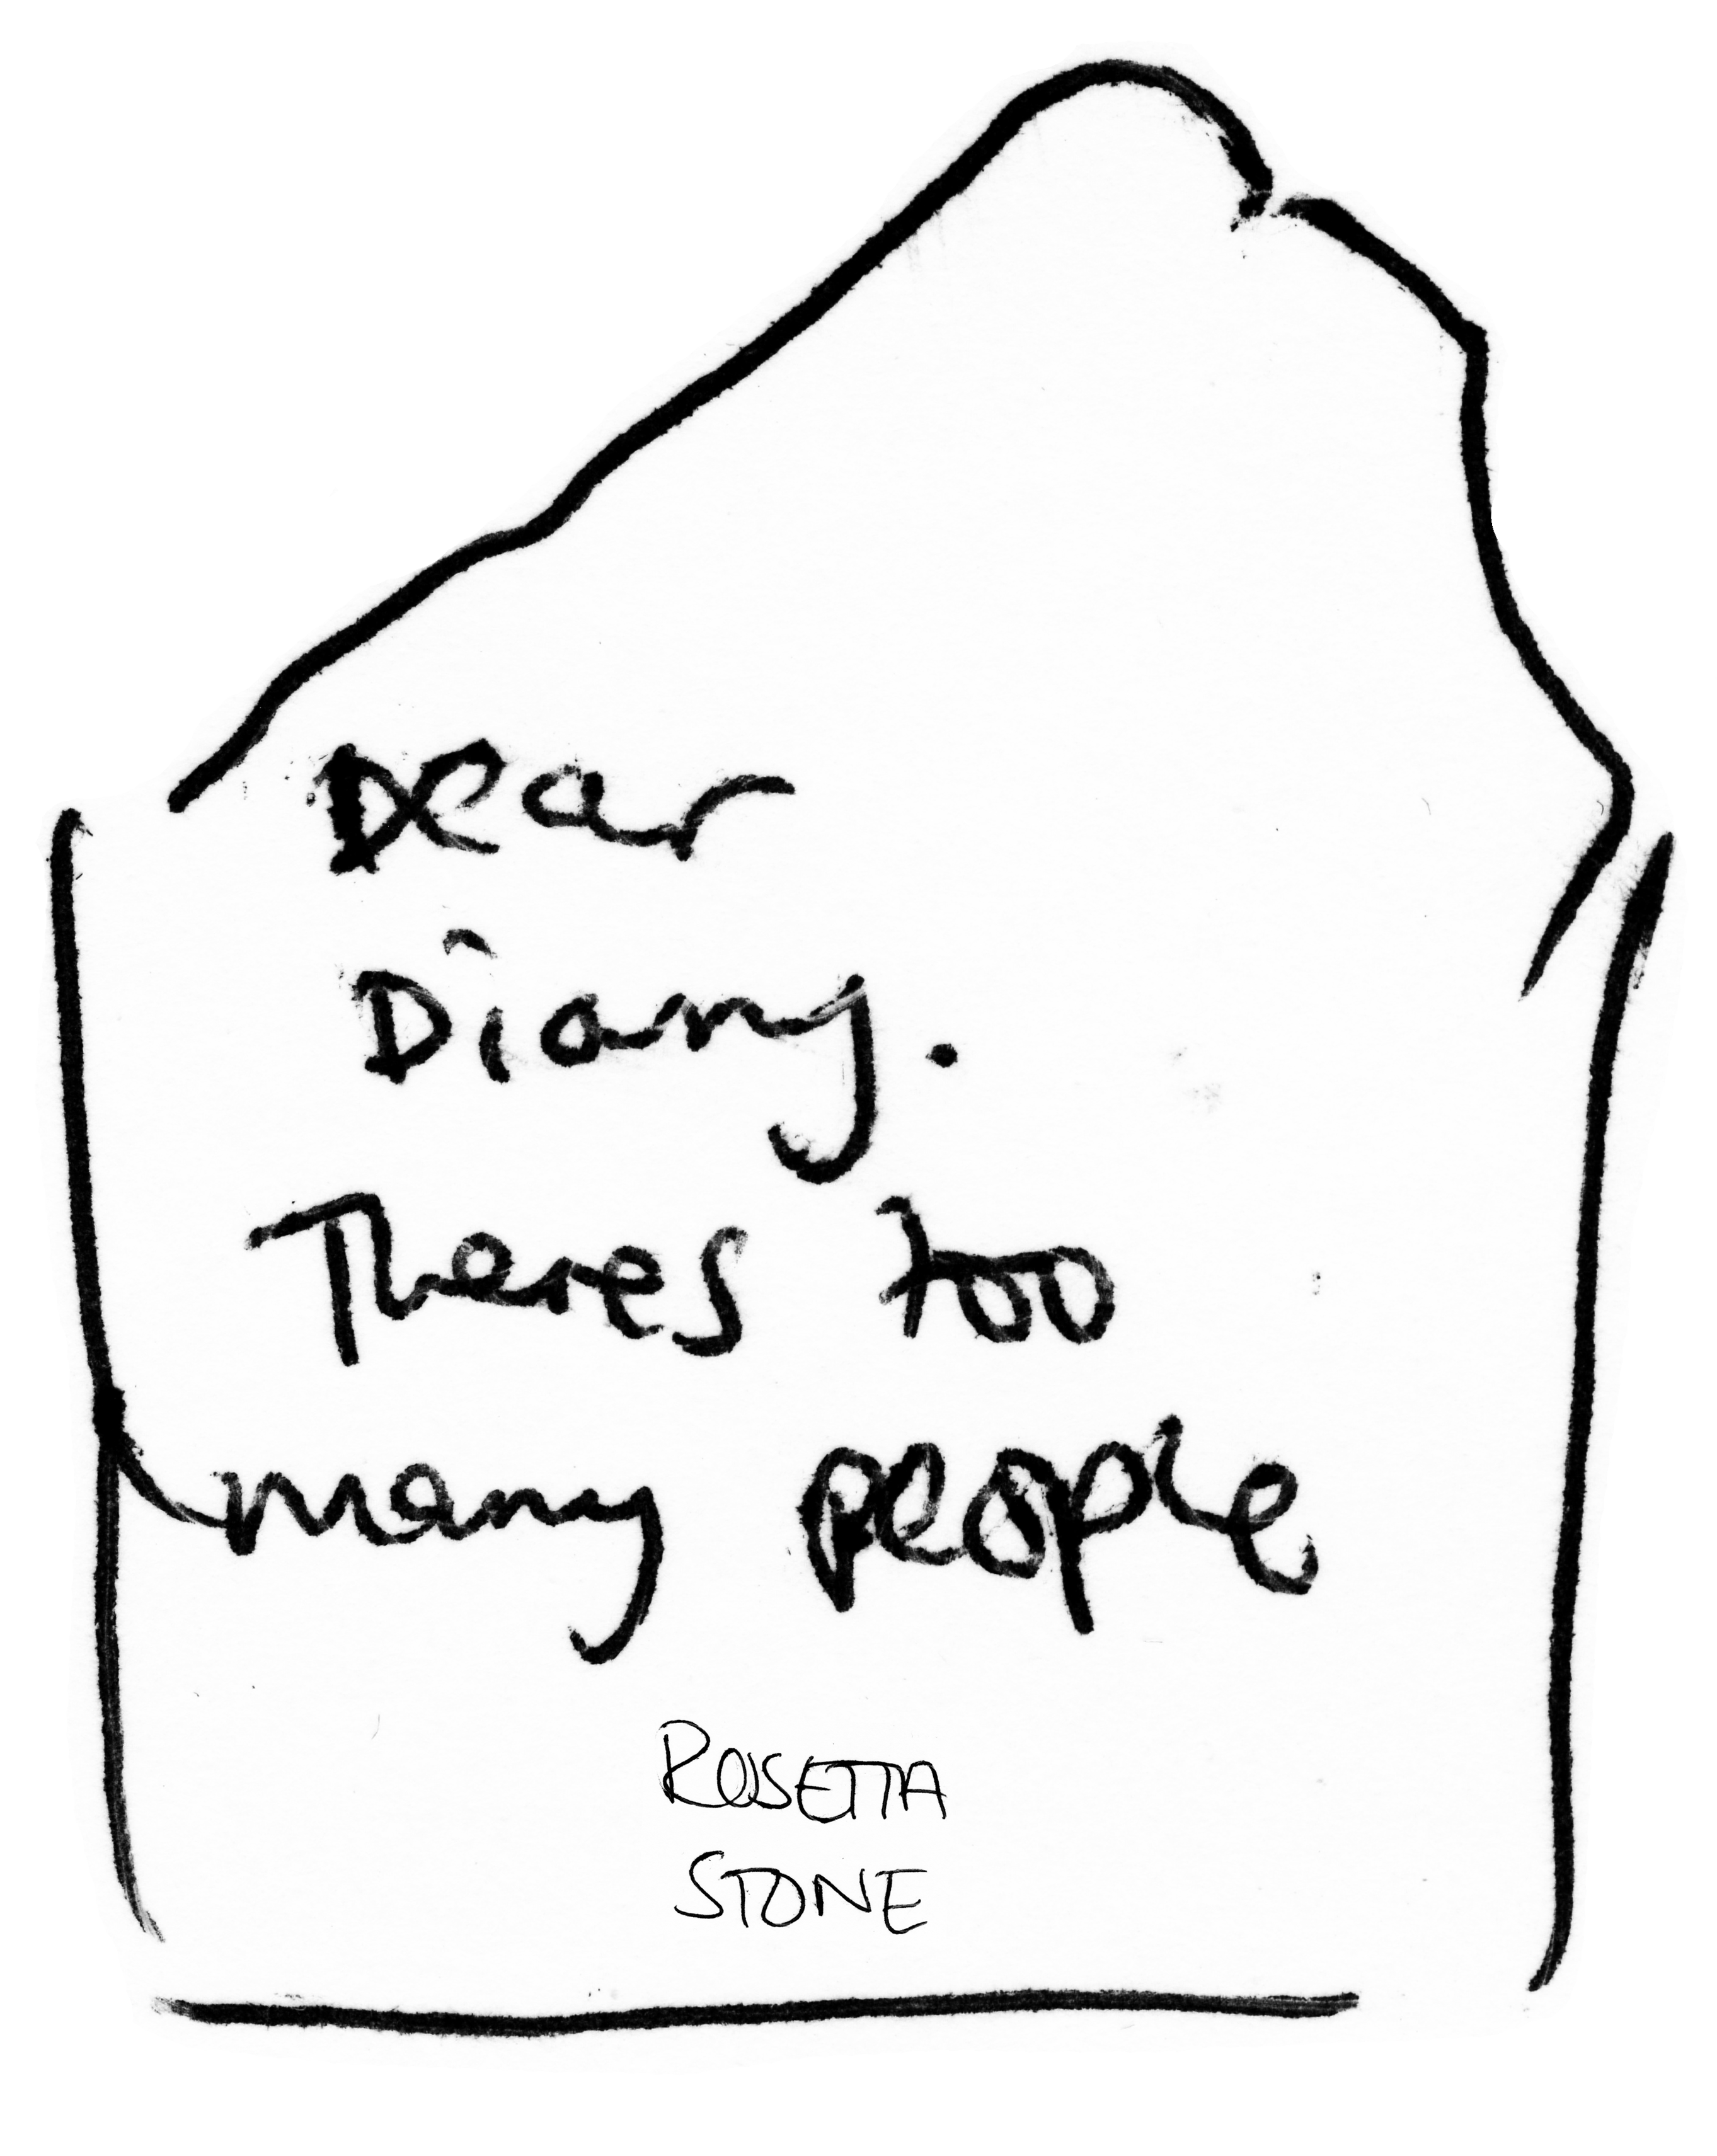 Dear
Diary.
Theres too
many people
ROSETTA
STONE